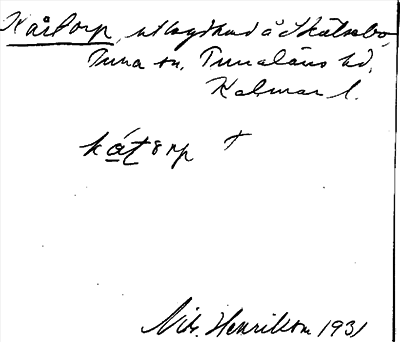 Kårtorp, utlagd på Skälsebo,
Tuna sn, Tunaläns hd,
Kalmar l.
kátorp †
Nils Henrikson 1931